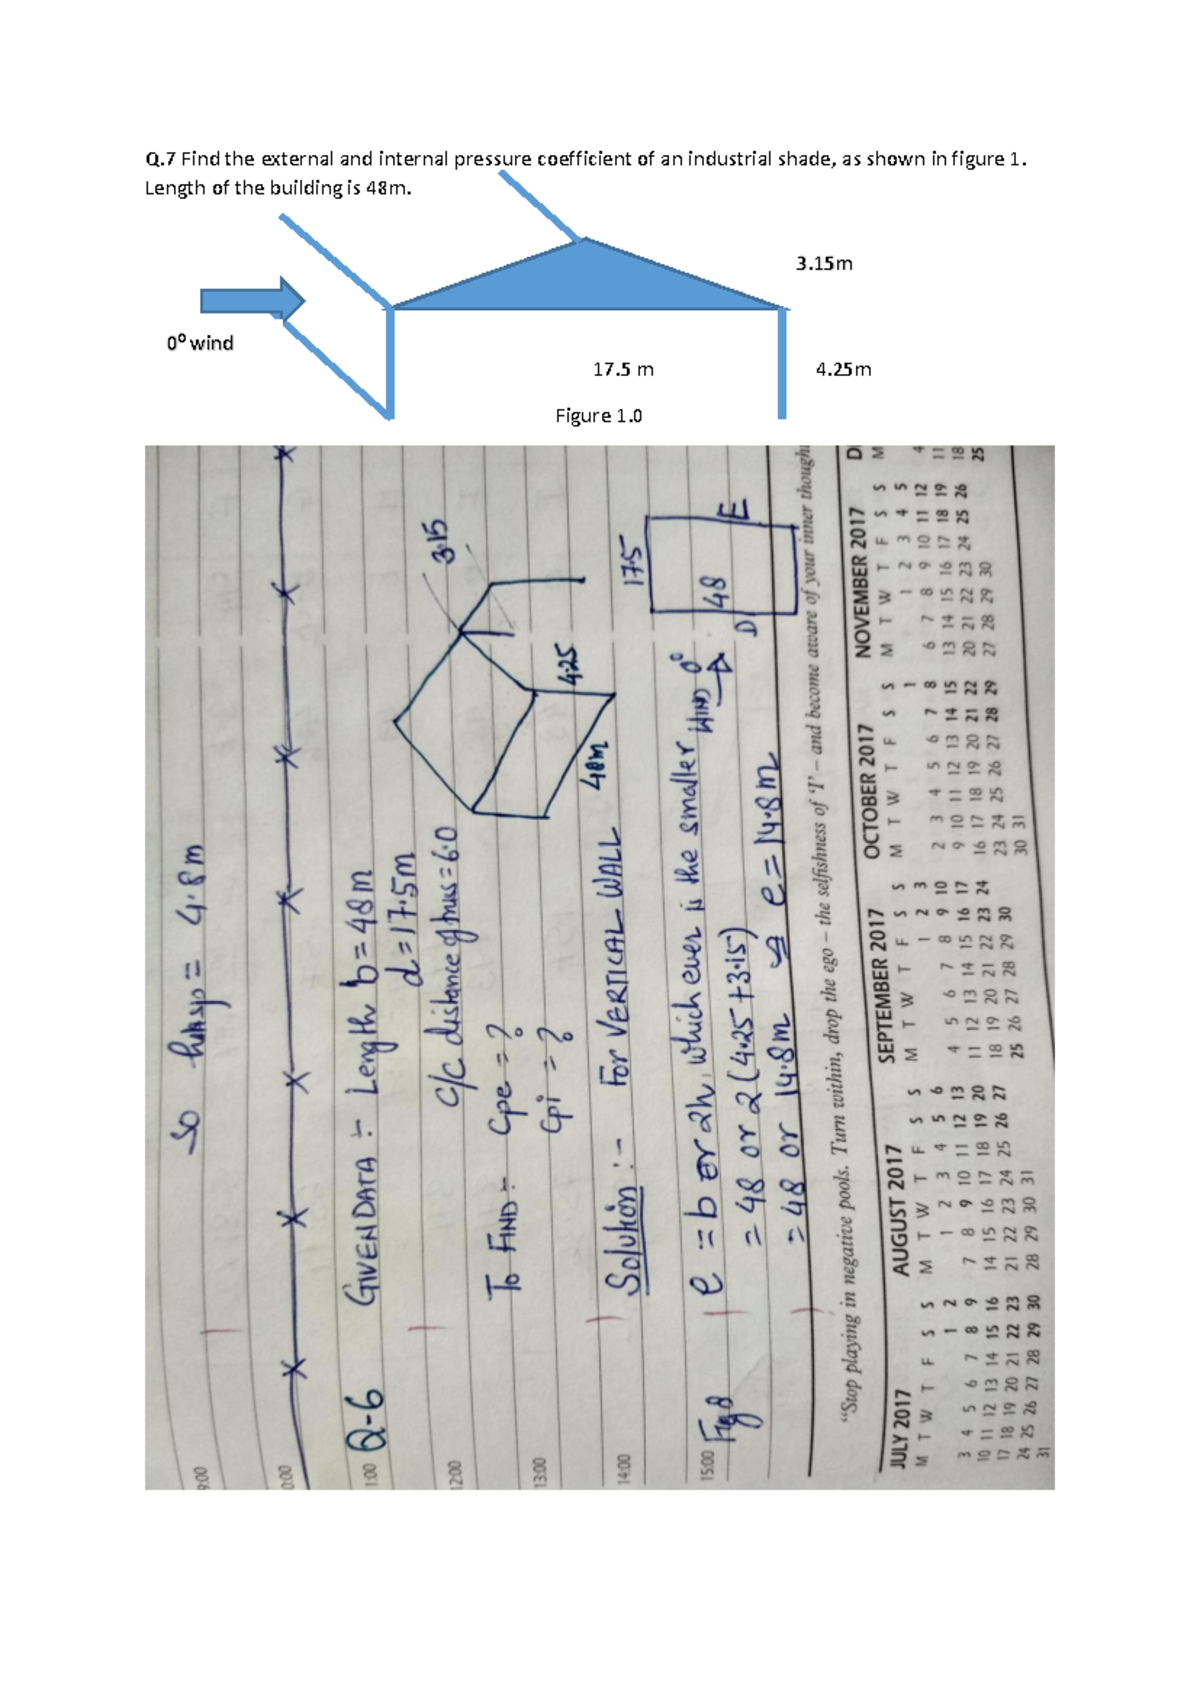 Q.7 Find the external and internal pressure coefficient of an industrial shade, as shown in figure 1.
Length of the building is 48m.
3.15m
0⁰ wind
17.5 m
4.25m
Figure 1.0
9:00
So = 4.8m
0:00
1:00 Q-6 GIVEN DATA :- Length b = 48m
d = 17.5m
12:00 c/c distance of truss = 6.0
3.15
4.25
48m
To FIND :- Cpe = ?
13:00 Cpi = ?
14:00 Solution :- For VERTICAL WALL
17.5
48
D
E
WIND 0°
15:00 e = b or 2h, which ever is the smaller
Fig 8 = 48 or 2(4.25+3.15)
= 48 or 14.8m e = 14.8m
"Stop playing in negative pools. Turn within, drop the ego – the selfishness of 'I' – and become aware of your inner though
JULY 2017
M T W T F S S
1 2
3 4 5 6 7 8 9
10 11 12 13 14 15 16
17 18 19 20 21 22 23
24 25 26 27 28 29 30
31
AUGUST 2017
M T W T F S S
1 2 3 4 5 6
7 8 9 10 11 12 13
14 15 16 17 18 19 20
21 22 23 24 25 26 27
28 29 30 31
SEPTEMBER 2017
M T W T F S S
1 2 3
4 5 6 7 8 9 10
11 12 13 14 15 16 17
18 19 20 21 22 23 24
25 26 27 28 29 30
OCTOBER 2017
M T W T F S S
1
2 3 4 5 6 7 8
9 10 11 12 13 14 15
16 17 18 19 20 21 22
23 24 25 26 27 28 29
30 31
NOVEMBER 2017
M T W T F S S
1 2 3 4 5
6 7 8 9 10 11 12
13 14 15 16 17 18 19
20 21 22 23 24 25 26
27 28 29 30
D
M
4
11
18
25